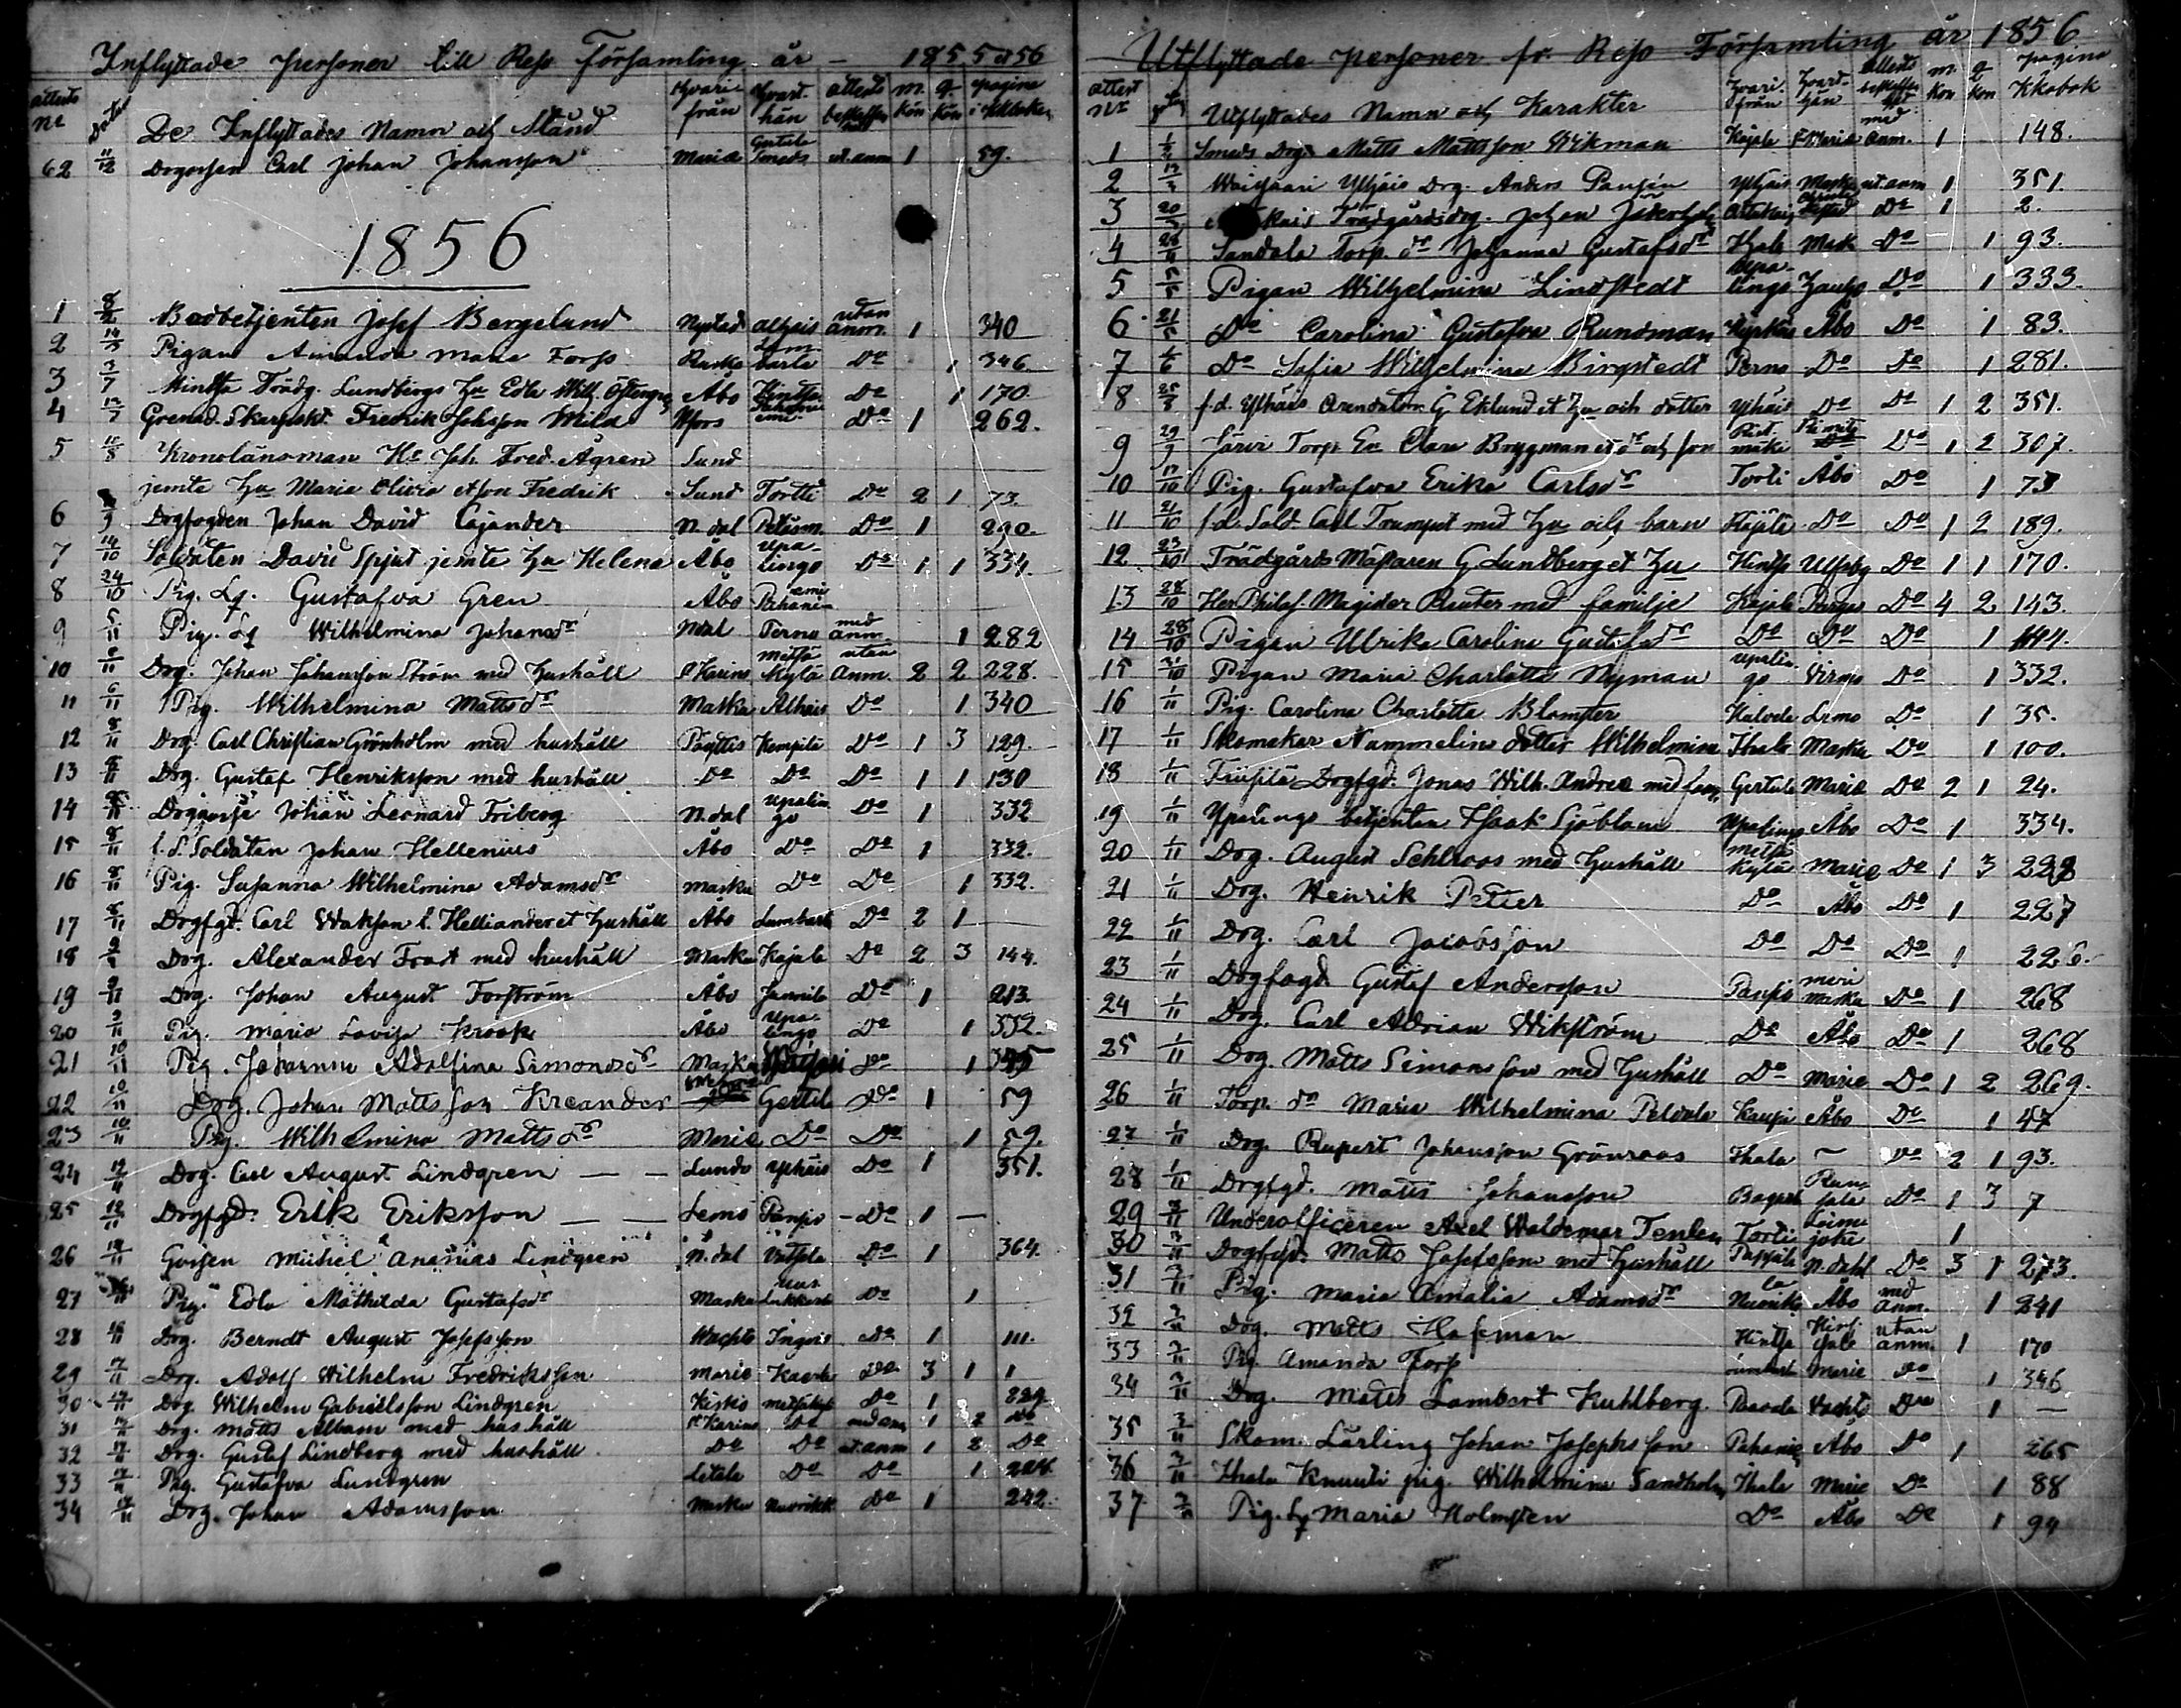 Inflyttade personer till Reso Församling år – 1855 o 56
attests No
De Inflyttades Namn och Stånd
hvari från
hvart hän
attests beskaffen
m. kön
q. kön
pagina i Kkboken
62 11/12 Dogossen Carl Johan Johansson Maria Gertula Smeds ut. anm 1 59.
1856
1 8/2 Badbetjenten Josef Bergelund Nystad Alhais utan anm. 1 340
2 14/3 Pigan Amanda Maria Forss Rusko Do 1 346
3 3/7 Hintsa Trädg. Lundbergs hu Edla Wilh. Åbo Hintsa Do 1 170
4 12/7 Grenad. Skarpskt. Fredrik Johsson Wild Hfors Do 1 262.
5 11/8 Kronolänsman Hr Joh. Fred. Ågren Sund
jemte hu Maria Olivia o son Fredrik Sund Tortti Do 2 1 73.
6 Dogfogden Johan David Cajander N.dal Do 1 290.
7 14/10 Soldaten David Spjut jemte hu Helena Åbo Upalingo Do 1 1 334.
8 24/10 Pig. Lq. Gustafva Gren Åbo Pahaniemi
9 5/11 Pig. Lq Wilhelmina Johansdr Ndal Perno med anm. 1 282
10 5/11 Drg. Johan Johansson Ström med hushåll St Karins Metsäkylä utan Anm. 2 2 228.
11 6/11 Pig. Wilhelmina Mattsdr Masku Alhais Do 1 340
12 8/11 Drg. Carl Christian Grönholm med hushåll Pöyttis Kempilä Do 1 3 129.
13 8/11 Drg. Gustaf Henriksson med hushåll Do Do Do 1 1 130
14 8/11 Johan Leonard Friberg N.dal Upalingo Do 1 332
15 8/11 f.d. Soldaten Johan Hellenius Åbo Do Do 1 332.
16 8/11 Pig. Susanna Wilhelmina Adamsdr Masku Do Do 1 332.
17 8/11 Drgfgd. Carl Isaksson l. Hellianderet hushåll Åbo Lumbarla Do 2 1
18 Drg. Alexander Frost med hushåll Masku Kajala Do 2 3 144.
19 9/11 Drg. Johan August Forsström Åbo Do 1 213
20 9/11 Pig. Maria Lovisa Krook Åbo Upalingo Do 1 332.
21 10/11 Pig. Johanna Adolfina Simonsdr Masku Do 1
22 10/11 Drg. Johan Mattsson Kreander Gertula Do 1 59
23 10/11 Pig. Wilhelmina Mattsdr Maria Do Do 1 59.
24 12/11 Drg. Carl August Lindgren — — Lundo Ylhäis Do 1 351.
25 12/11 Drgfgd. Erik Eriksson — — Lemo Pansio – Do 1 —
26 12/11 Gossen Michel Ananias Lindgren N.dal Do 1 364.
27 Pig. Edla Mathilda Gustafsdr Masku Do 1
28 Drg. Berndt August Josefsson Ingois Do 1 111.
29 17/11 Drg. Adolf Wilhelm Fredriksson Maria Do 3 1 1
30 17/11 Drg. Wilhelm Gabrielsson Lindgren Kisko Do 1 229
31 17/11 Drg. Matts Albom med hushåll St Karins Do med anm 1 2 Do
32 17/11 Drg. Gustaf Lindberg med hushåll. Do Do ut. anm 1 2 Do
33 17/11 Pig. Gustafva Lundgren Letala Do Do 1
34 17/11 Drg. Johan Adamsson Masku Do 1 242.
Utflyttade personer fr. Reso Församling år 1856
attest No
Utflyttades Namn och Karakter
hvari från
hvart hän
attests beskaffenhet
m. kön
q. kön
pagina Kkobok
1 Smeds Drg. Matts Mattsson Wikman Kajala Maria med Anm. 1 148.
2 Ylhäis Drg. Anders Pansin Ylhäis Masku ut. anm 1 351.
3 Trädgårdsdrg. Johan Do 1 2.
4 Sandala Torp. dr Johanna Gustafsdr Ihala Mask Do 1 93.
5 5/5 Pigan Wilhelmina Lindstedt Upalingo Do 1 333.
6 21/5 Do Carolina Gustafva Rundman Åbo Do 1 83.
7 Do Sofia Wilhelmina Birgstedt Perno Do Do 1 281.
8 f.d. Ylhäis Arendatorn G Eklund et hu och dotter Ylhäis Do Do 1 2 351.
9 Järvi Torp. En. Clara Bryggman et dr och son Do 1 2 307.
10 17/10 Pig. Gustafva Erika Carlsdr Torti Åbo Do 1 73
11 21/10 f.d. Sold. Carl Trumpet med hu och barn Do Do 1 2 189.
12 23/10 Trädgårds Mästaren G Lundberg et hu Hintsa Ulfsby Do 1 1 170.
13 28/10 Her. Philos. Magister Reuter med familje Kajala Pargas Do 4 2 143.
14 28/10 Pigan Ulrika Carolina Gustafsdr Do Do Do 1 144.
15 31/10 Pigan Maria Charlotta Nyman Upalingo Virmo Do 1 332.
16 1/11 Pig. Carolina Charlotta Blomster Halvola Lemo Do 1 35.
17 1/11 Skomakar Nummelins dotter Wilhelmina Ihala Masku Do 1 100.
18 1/11 Drgfgd. Jonas Wilh. Andree med fam. Gertula Maria Do 2 1 24.
19 1/11 Upalingo betjenten Isaak Sjöblom Upalingo Åbo Do 1 334.
20 1/11 Drg. August Schlroos med hushåll Metsäkylä Maria Do 1 3 228
21 1/11 Drg. Henrik Petter Do Åbo Do 1 227
22 1/11 Drg. Carl Jacobsson Do Do Do 1 226.
23 1/11 Drgfogd. Gustaf Andersson Pansio merimasku Do 1 268
24 1/11 Drg. Carl Adrian Wikström Do Åbo Do 1 268
25 1/11 Drg. Matts Simonsson med hushåll Do Maria Do 1 2 269.
26 1/11 Torp. dr Maria Wilhelmina Peldola Kaupi Åbo Do 1 47
27 1/11 Drg. Rupert Johansson Grönroos Ihala ~ Do 2 1 93.
28 1/11 Drgfgd. Matts Johansson Rantala Do 1 3 7
29 Underofficeren Axel Waldemar Tenlen Torti Loimijoki 1
30 Drgfgd. Matts Josefsson med hushåll N.dahl Do 3 1 273.
31 Pig. Maria Amalia Adamsdr Åbo med anm. 1 241
32 Drg. Matts Hafsman Hintsa utan anm. 1 170
33 Pig. Amanda Forss Maria Do 1 346
34 Drg. Matts Lambert Kuhlberg Do 1 —
35 Skom. Lärling Johan Josephsson Åbo Do 1 265
36 Ihala Knuuti pig. Wilhelmina Sandholm Ihala Maria Do 1 88
37 Pig. Lq Maria Holmsten Do Åbo Do 1 94